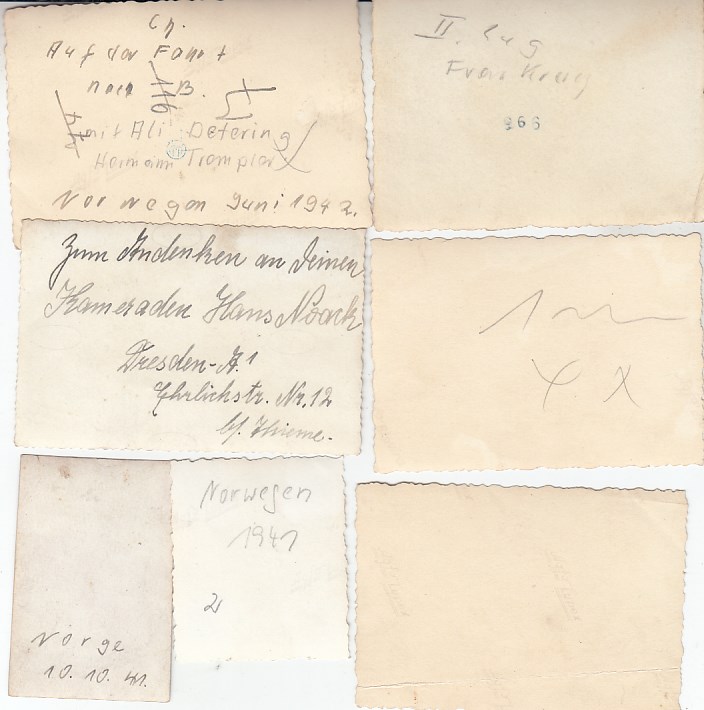 Ch.
Auf der Fahrt
nach B.
116
mit Ali Detering
Hermann Trampler
Norwegen Juni 1942.
II. Zug
Frau
966
Zum Andenken an Deinen
Kameraden Hans Noack
Dresden-A. 1
Ehrlichstr. Nr. 12
b/. Thieme.
Norge
10. 10. 41.
Norwegen
1941
2